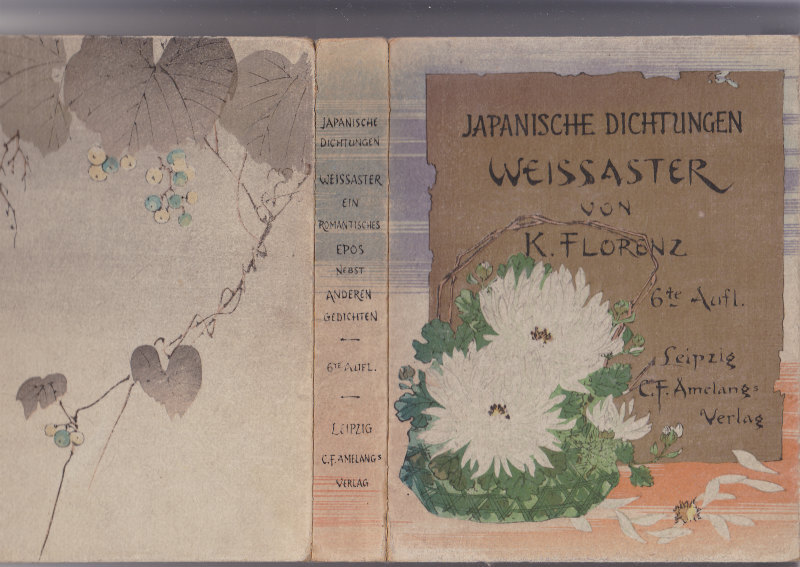 JAPANISCHE
DICHTUNGEN
WEISSASTER
EIN
ROMANTISCHES
EPOS
NEBST
ANDEREN
GEDICHTEN
6TE AUFL.
LEIPZIG
C.F. AMELANGS
VERLAG
JAPANISCHE DICHTUNGEN
WEISSASTER
VON
K. FLORENZ
6te Aufl.
Leipzig
C.F. Amelangs
Verlag